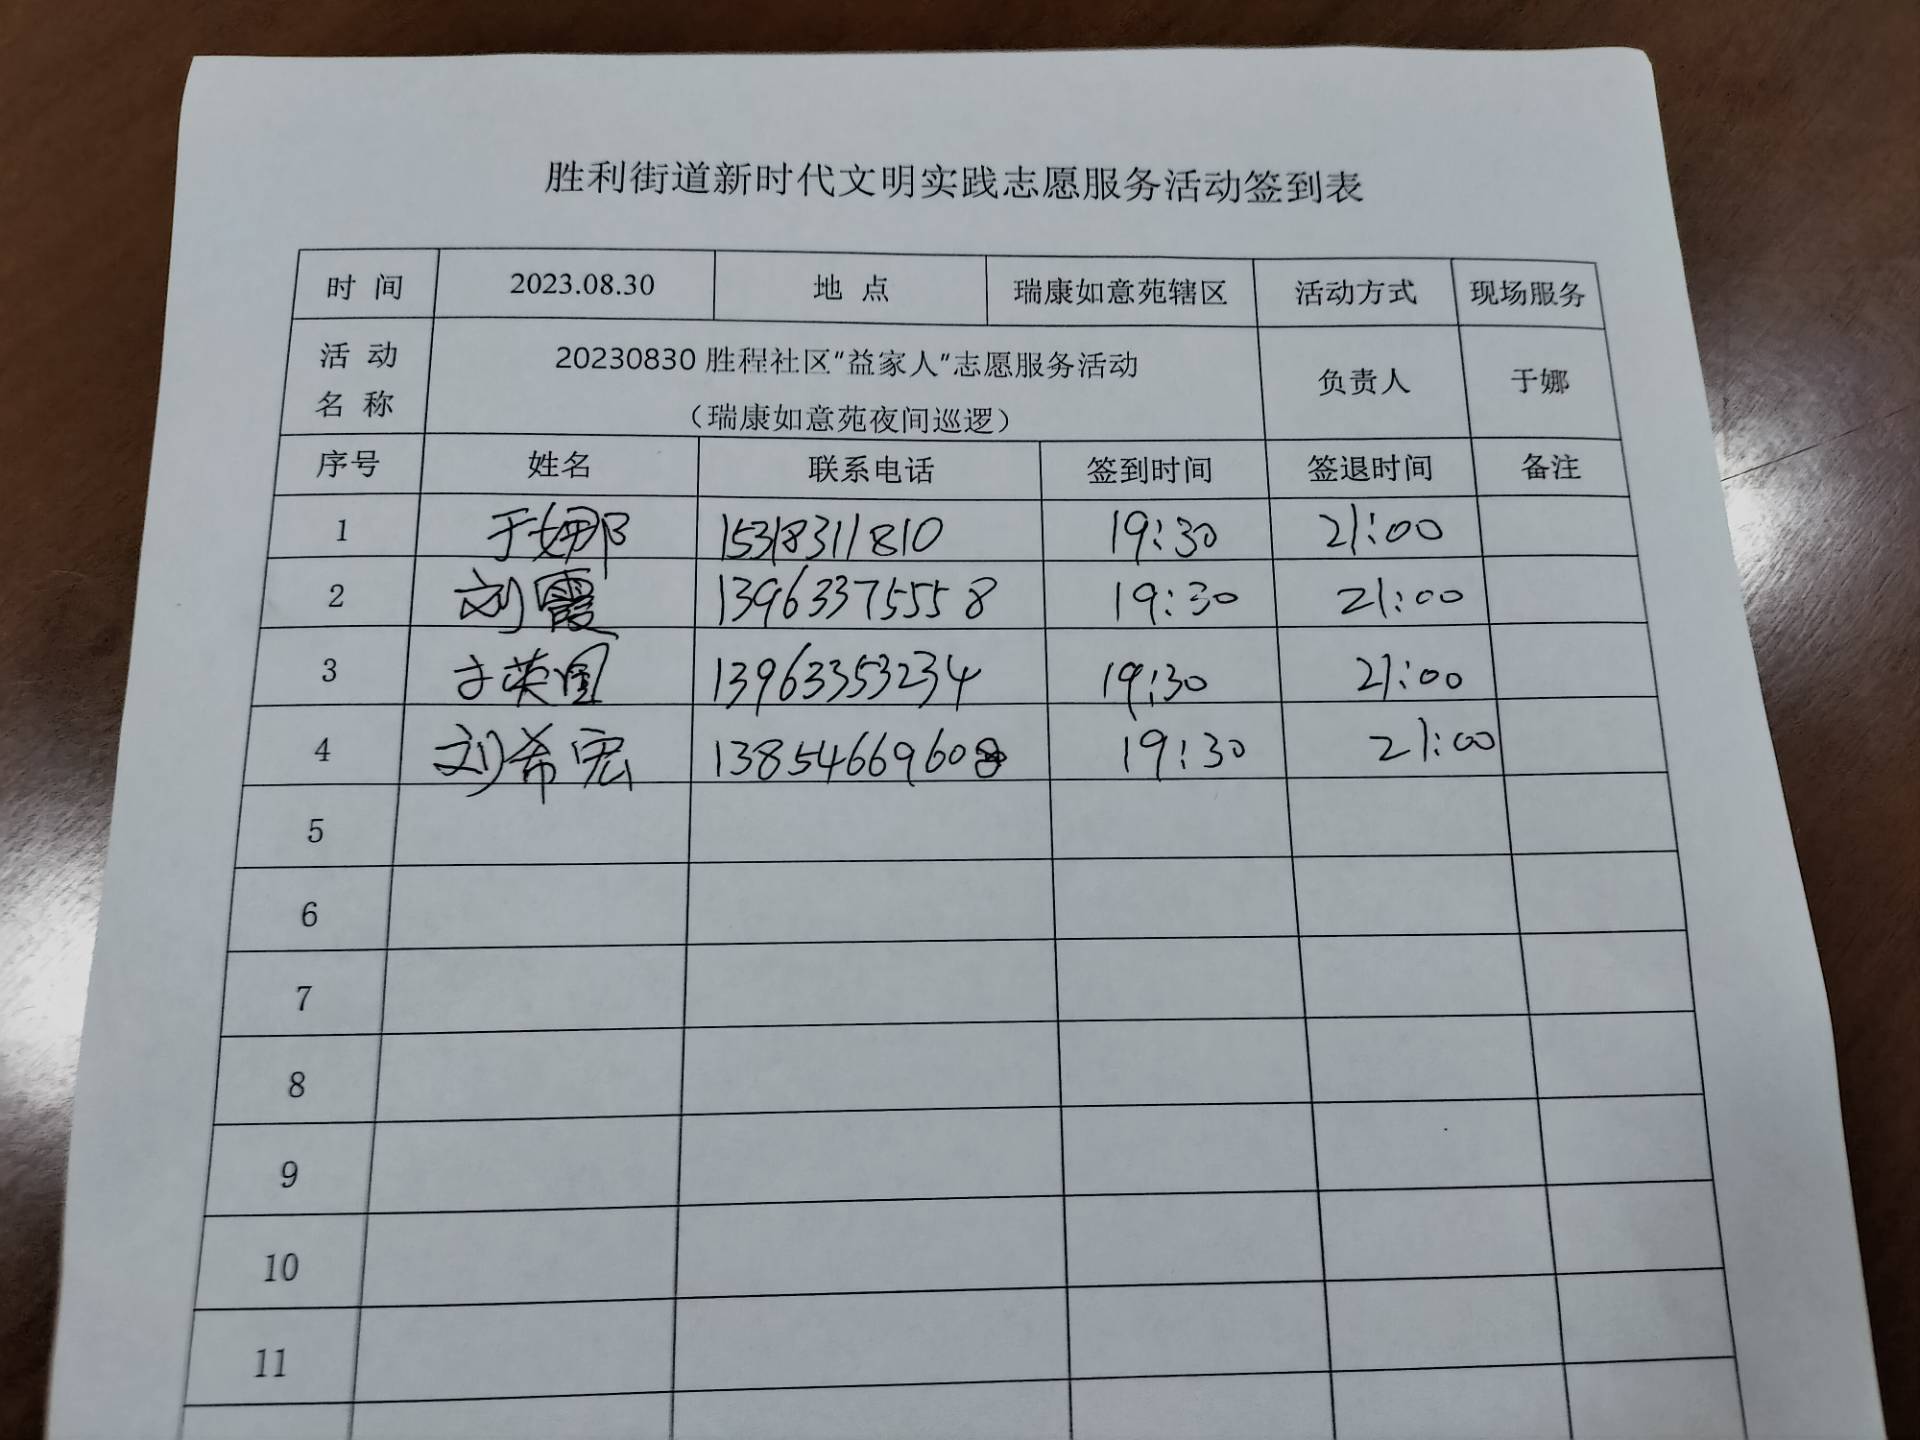 胜利街道新时代文明实践志愿服务活动签到表
时 间 2023.08.30 地 点 瑞康如意苑辖区 活动方式 现场服务
活 动 名 称 20230830 胜程社区“益家人”志愿服务活动 负责人 于娜
（瑞康如意苑夜间巡逻）
序号 姓名 联系电话 签到时间 签退时间 备注
1 于娜 15318311810 19:30 21:00
2 刘霞 13963375558 19:30 21:00
3 13963353234 19:30 21:00
4 刘希宏 13854669608 19:30 21:00
5
6
7
8
9
10
11